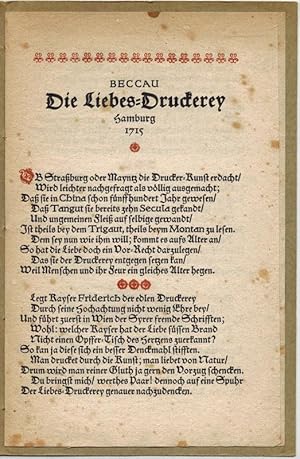 BECCAU
Die Liebes-Druckerey
Hamburg
1715
OB Straßburg oder Mayntz die Drucker-Kunst erdacht/
Wird leichter nachgefragt als völlig ausgemacht;
Daß sie in China schon fünffhundert Jahr gewesen/
Daß Tangut sie bereits zehn Secula gekandt/
Und ungemeinen Fleiß auf selbige gewandt/
Ist theils bey dem Trigaut, theils beym Montan zu lesen.
Dem sey nun wie ihm will; kommt es aufs Alter an/
So hat die Liebe doch ein Vor-Recht darzulegen/
Das sie der Druckerey entgegen setzen kan/
Weil Menschen und ihr Feur ein gleiches Alter hegen.
Legt Kayser Friderich der edlen Druckerey
Durch seine Hochachtung nicht wenig Ehre bey/
Und führt zuerst in Wien der Syrer fremde Schrifften;
Wohl: welcher Kayser hat der Liebe süssen Brand
Nicht einen Opffer-Tisch des Hertzens zuerkannt?
So kan ja diese sich ein besser Denckmahl stifften.
Man drucket durch die Kunst; man liebet von Natur/
Drum wird man reiner Gluth ja gern den Vorzug schencken.
Du bringst mich/ werthes Paar! dennoch auf eine Spuhr
Der Liebes-Druckerey genauer nachzudencken.